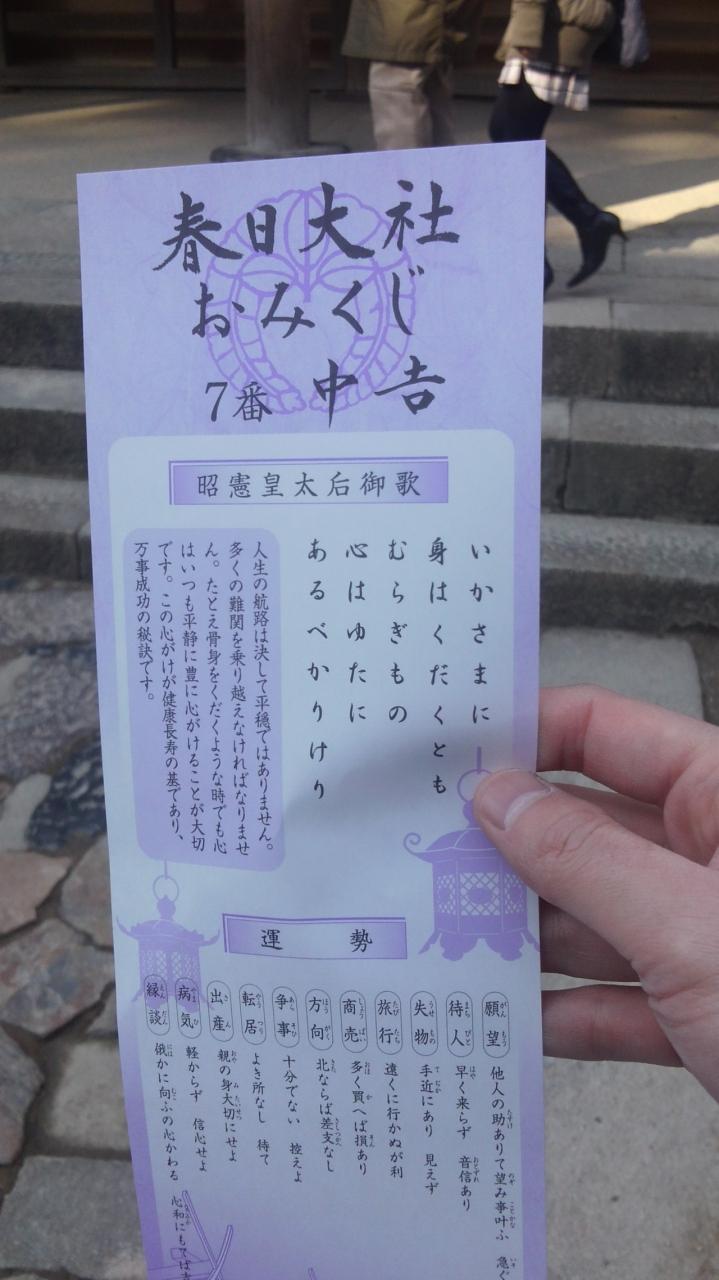 春日大社
おみくじ
7番 中吉
昭憲皇太后御歌
いかさまに
身はくだくとも
むらぎもの
心はゆたに
あるべかりけり
人生の航路は決して平穏ではありません。
多くの難関を乗り越えなければなりませ
ん。たとえ骨身をくだくような時でも心
はいつも平静に豊に心がけることが大切
です。この心がけが健康長寿の基であり、
万事成功の秘訣です。
運勢
願望 他人の助ありて望み事叶ふ 急
待人 早く来らず 音信あり
失物 手近にあり 見えず
旅行 遠くに行かぬが利
商売 多く買へば損あり
方向 北ならば差支なし
争事 十分でない 控えよ
転居 よき所なし 待て
出産 親の身大切にせよ
病気 軽からず 信心せよ
縁談 俄かに向ふの心かわる 心和にもてば